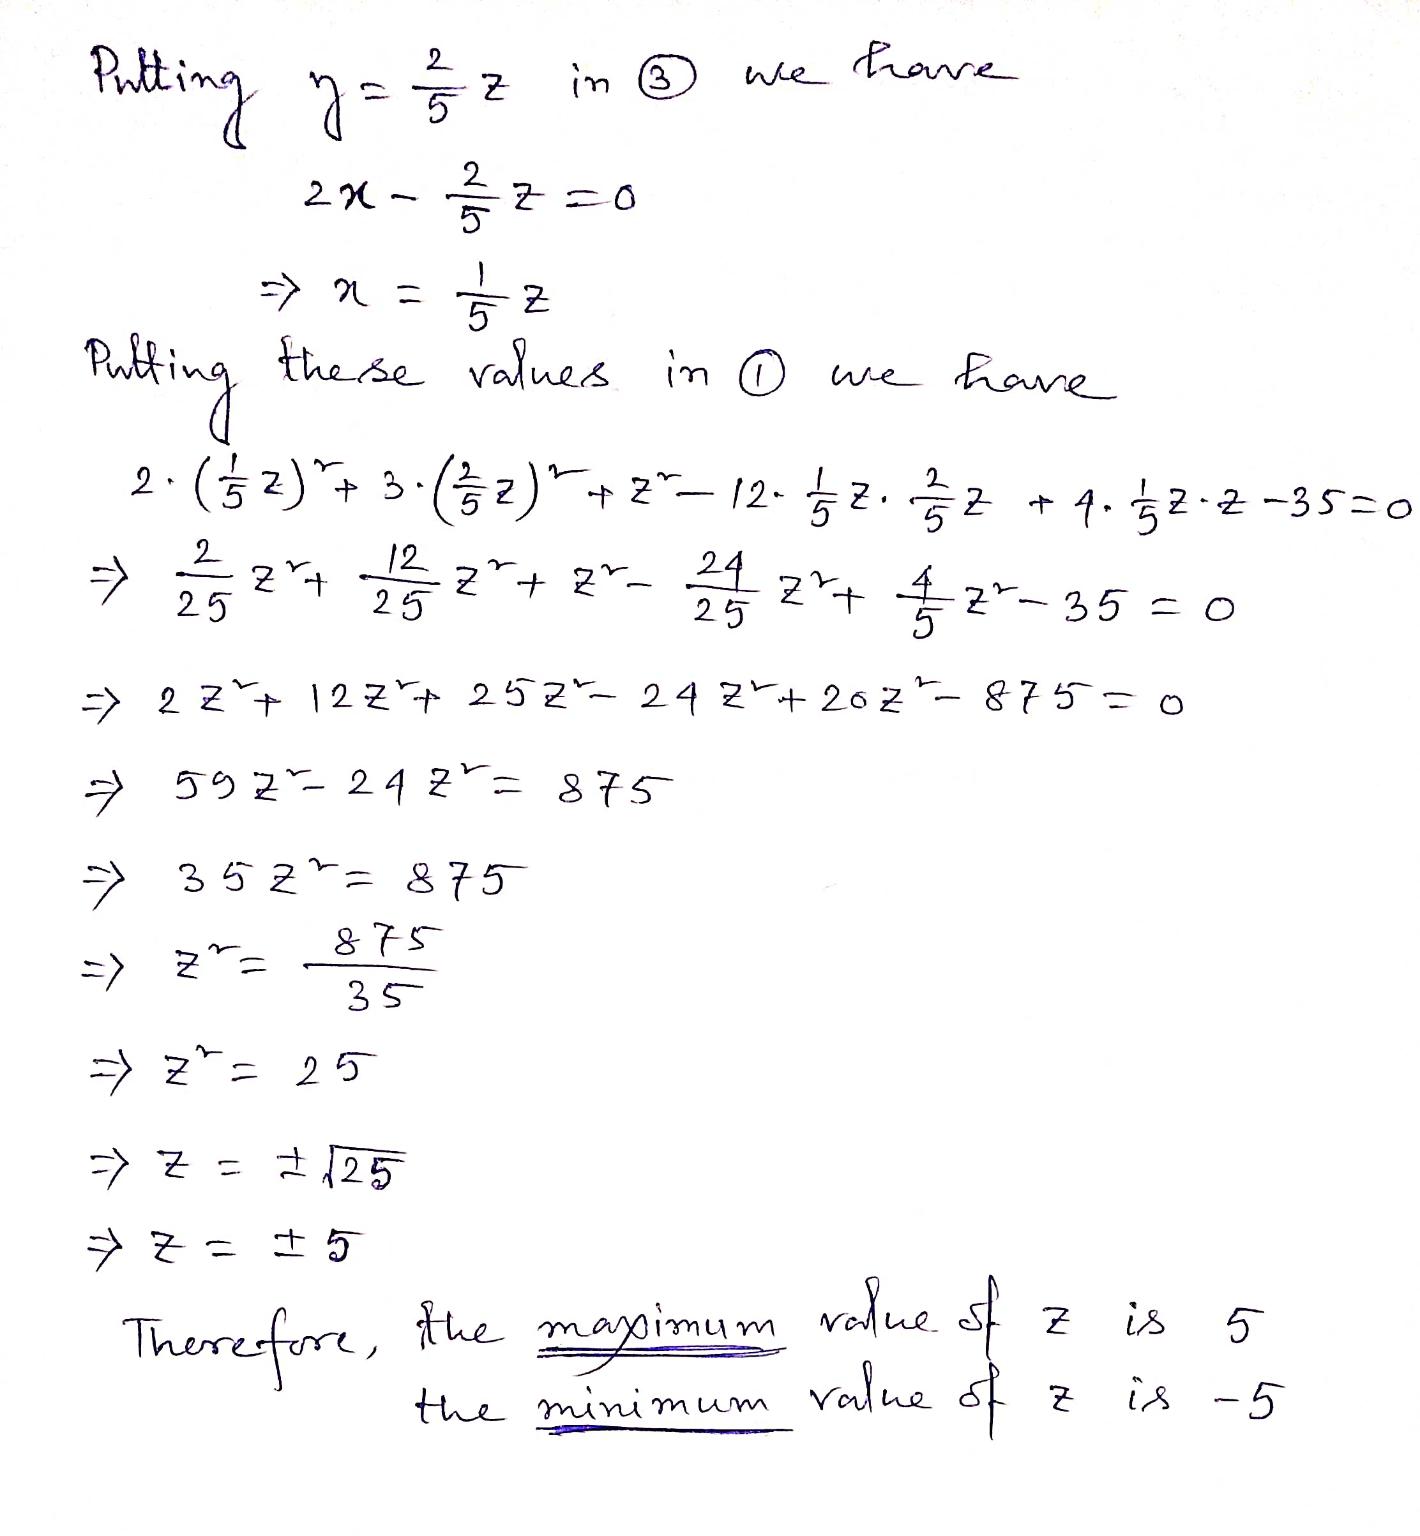 Putting y = 2/5 z in ③ we have
2x - 2/5 z = 0
⇒ x = 1/5 z
Putting these values in ① we have
2·(1/5 z)² + 3·(2/5 z)² + z² - 12·1/5 z·2/5 z + 4·1/5 z·z - 35 = 0
⇒ 2/25 z² + 12/25 z² + z² - 24/25 z² + 4/5 z² - 35 = 0
⇒ 2z² + 12z² + 25z² - 24z² + 20z² - 875 = 0
⇒ 59z² - 24z² = 875
⇒ 35z² = 875
⇒ z² = 875/35
⇒ z² = 25
⇒ z = ±√25
⇒ z = ±5
Therefore, the maximum value of z is 5
the minimum value of z is -5